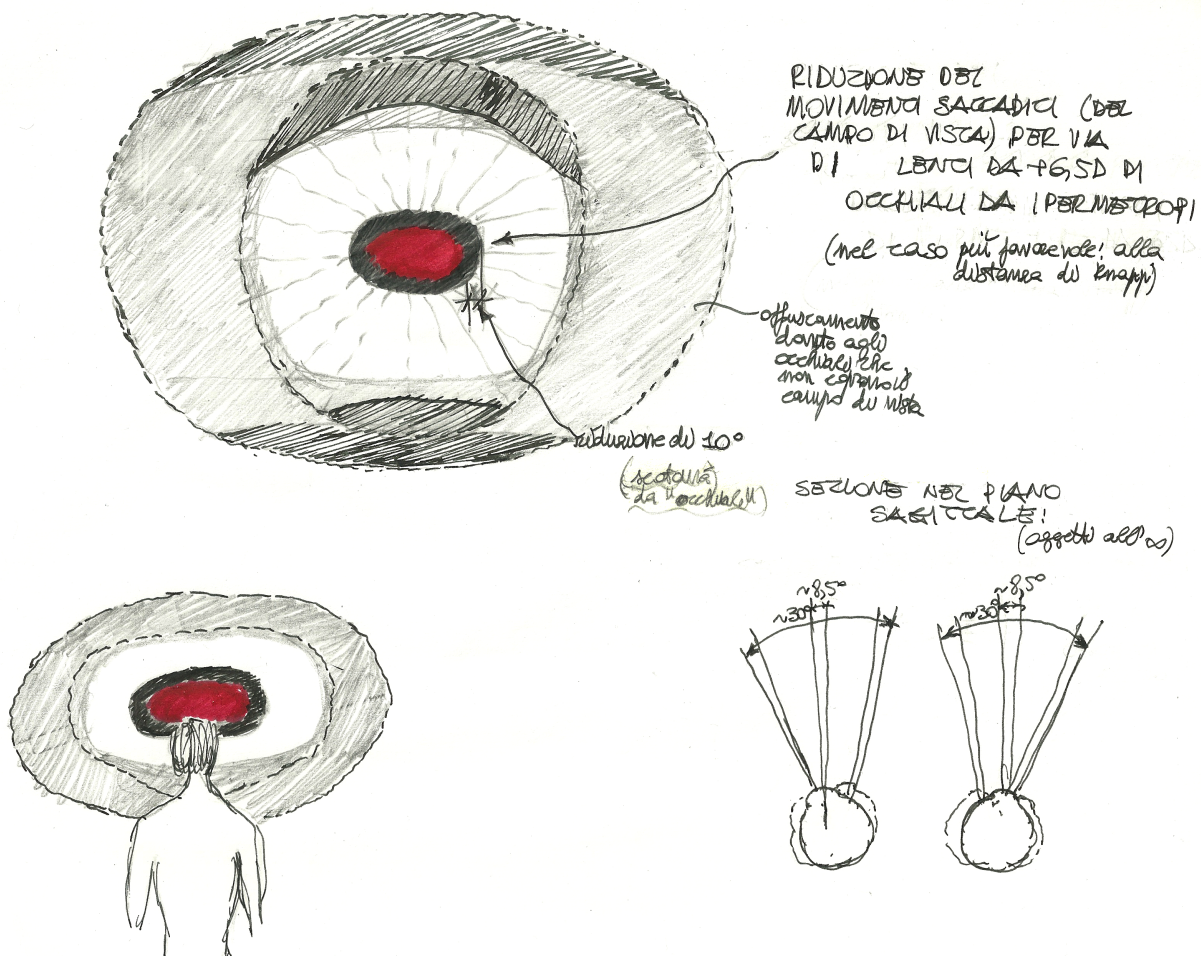 RIDUZIONE DEI
MOVIMENTI SACCADICI (DEL
CAMPO DI VISTA) PER VIA
DI LENTI DA +6,5D DI
OCCHIALI DA IPERMETROPI
(nel caso più favorevole: alla
distanza di Knapp)
offuscamento
dovuto agli
occhiali che
non coprono il
campo di vista
riduzione di 10°
(scotoma
da "occhiale")
SEZIONE NEL PIANO
SAGITTALE:
(oggetti all'∞)
~8,5°
~30°
~8,5°
~30°